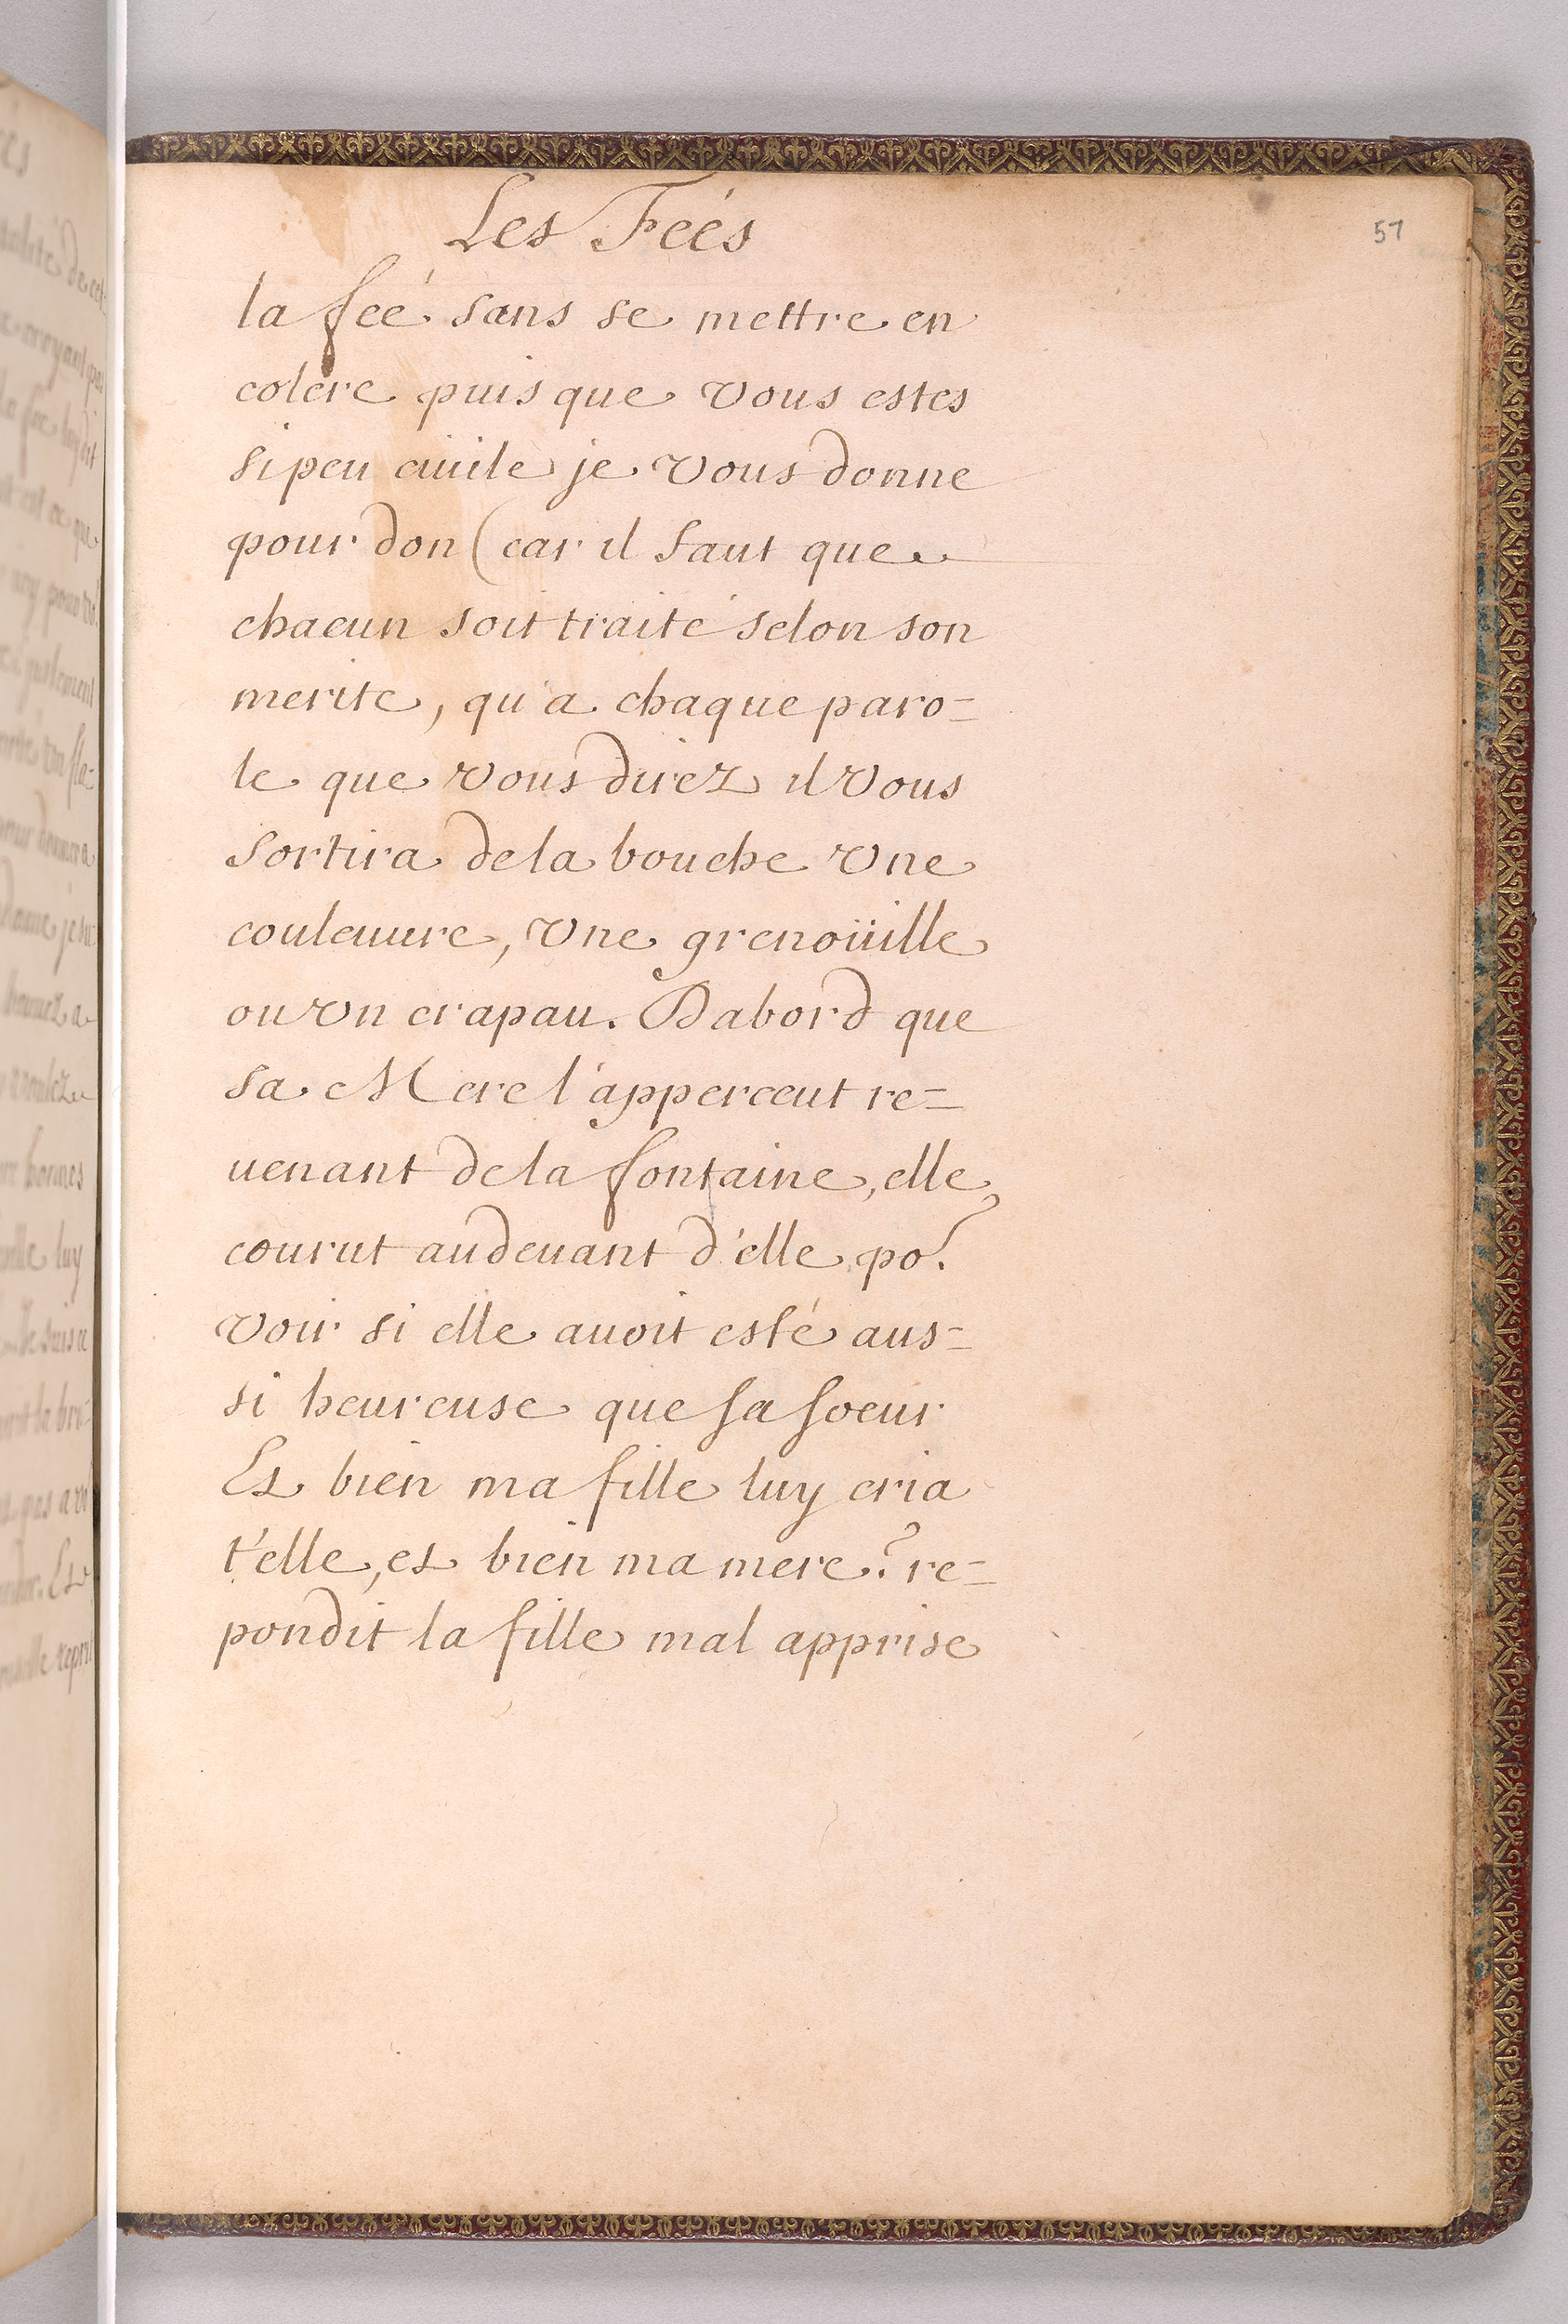 Les Feés
57
la feé sans se mettre en
colere puis que vous estes
si peu ciuile je vous donne
pour don (car il faut que
chacun soit traité selon son
merite, qu'a chaque paro=
le que vous direz il vous
sortira de la bouche vne
couleuure, vne grenoüille
ou vn crapau. Dabord que
sa Mere l'apperceut re=
uenant de la fontaine, elle
courut au deuant d'elle po.r
voir si elle auoit esté aus=
si heureuse que sa soeur
Et bien ma fille luy cria
t'elle, et bien ma mere? re=
pondit la fille mal apprise